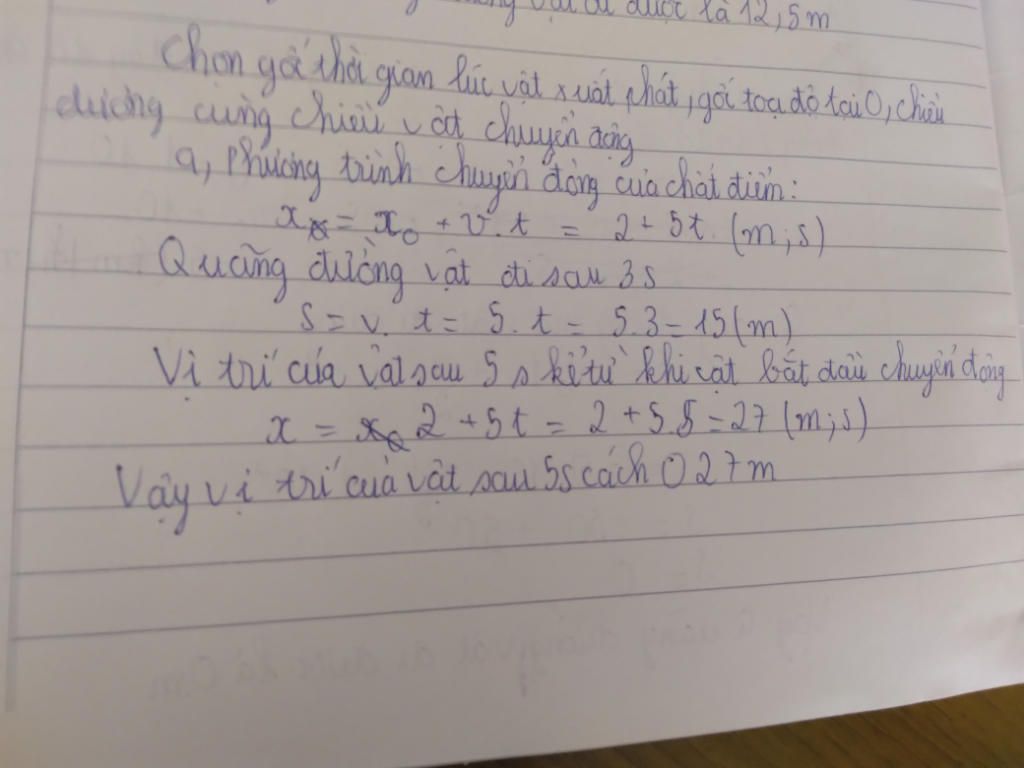 vật đi được là 12,5m
Chọn gốc thời gian lúc vật xuất phát, gốc toạ độ tại O, chiều
dương cùng chiều vật chuyển động
a, Phương trình chuyển động của chất điểm:
x = x₀ + v.t = 2 + 5t (m;s)
Quãng đường vật đi sau 3s
S = v. t = 5. t = 5.3 = 15 (m)
Vị trí của vật sau 5s kể từ khi vật bắt đầu chuyển động
x = 2 + 5t = 2 + 5.5 = 27 (m;s)
Vậy vị trí của vật sau 5s cách O 27m